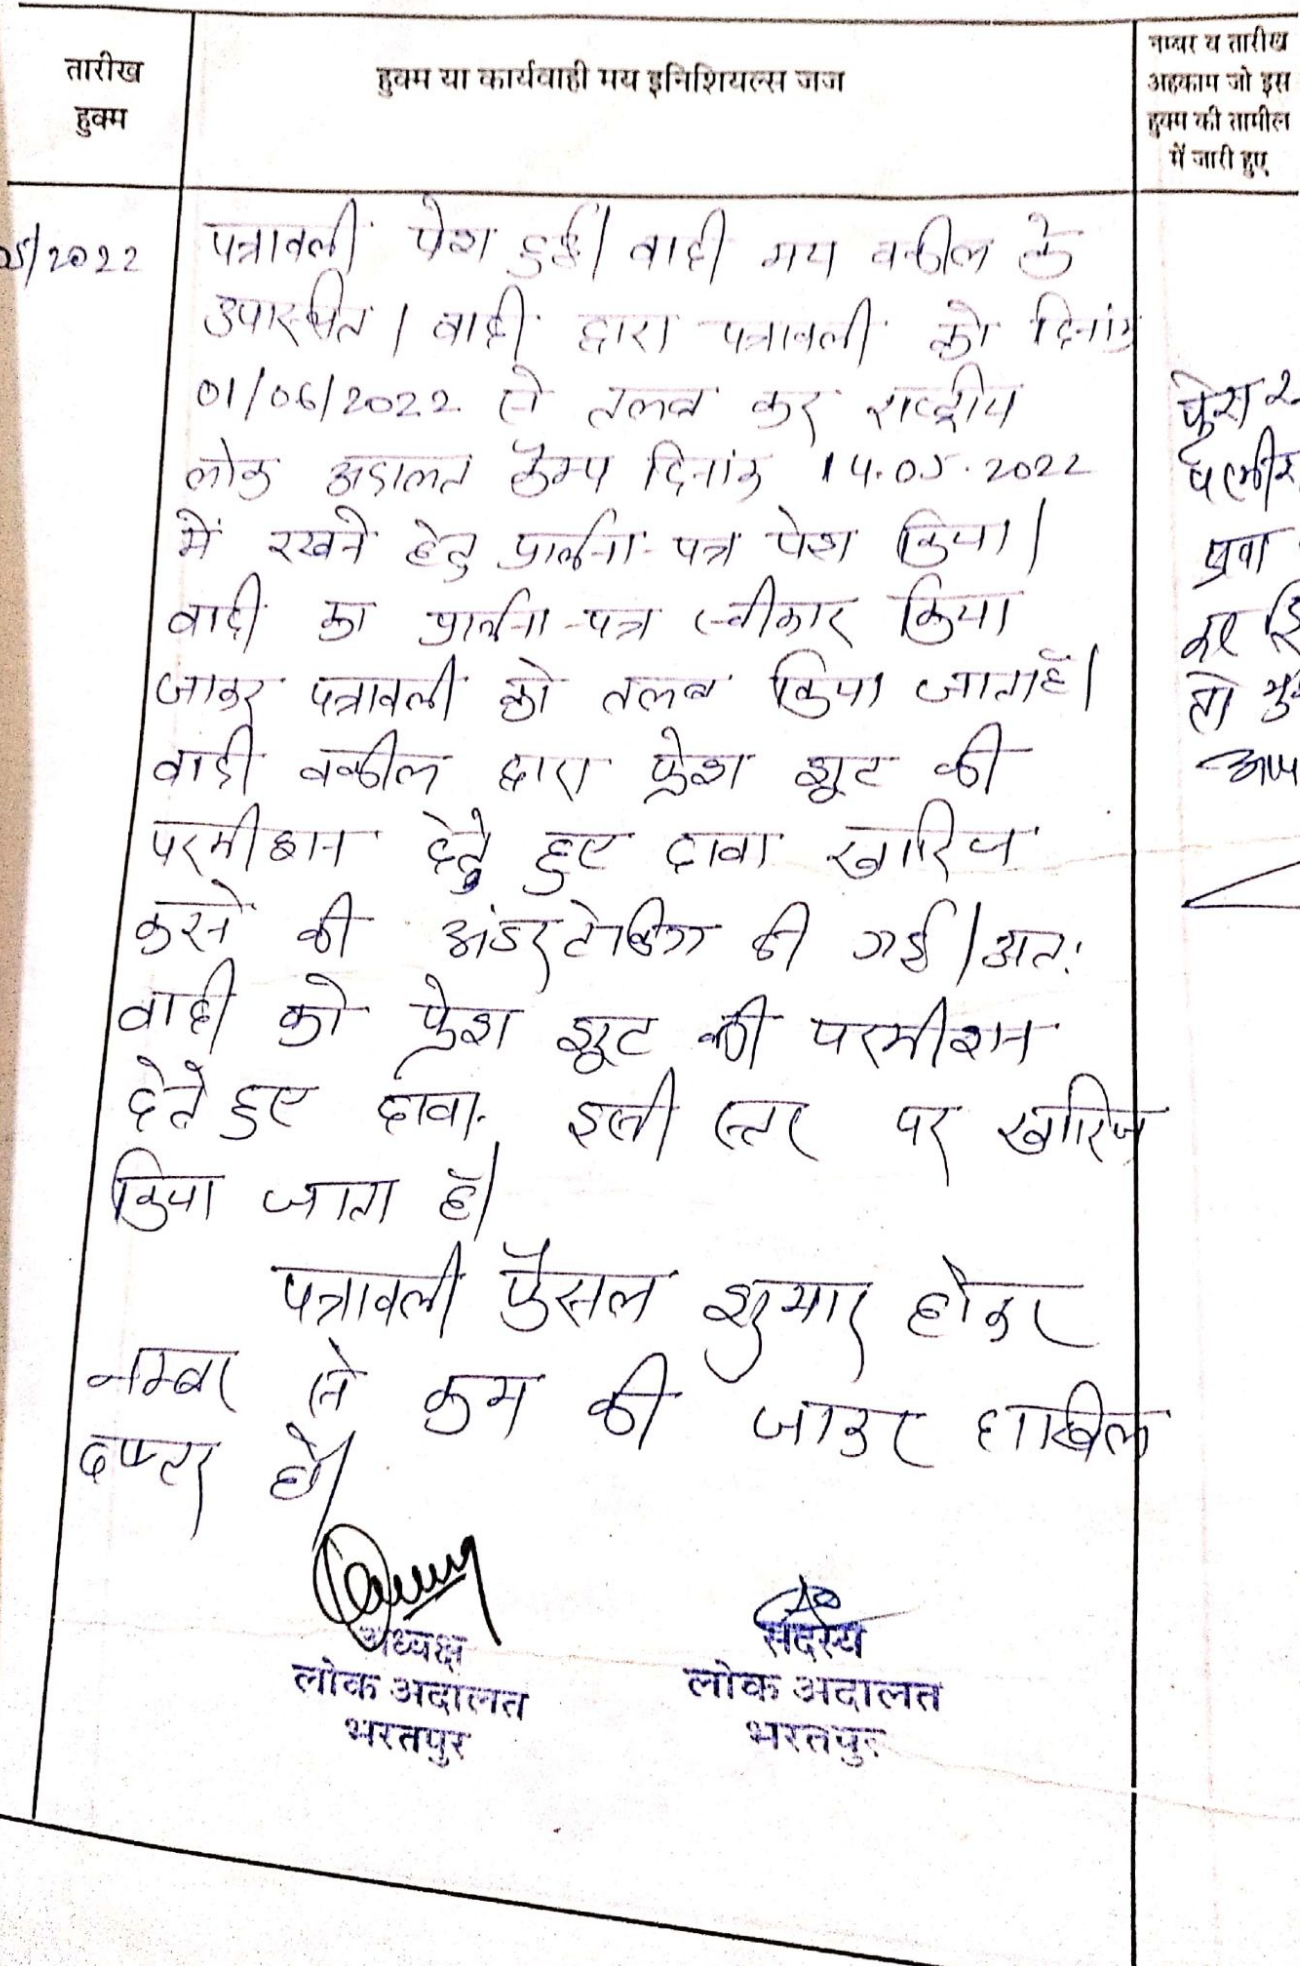 तारीख
हुक्म
हुक्म या कार्यवाही मय इनिशियल्स जज
नम्बर व तारीख
अहकाम जो इस
हुक्म की तामील
में जारी हुए
05/2022
पत्रावली पेश हुई। वादी मय वकील के
उपस्थित। वादी द्वारा पत्रावली को दिनांक
01/06/2022 से तलब कर राष्ट्रीय
लोक अदालत कैम्प दिनांक 14.05.2022
में रखने हेतु प्रार्थना-पत्र पेश किया।
वादी का प्रार्थना-पत्र स्वीकार किया
जाकर पत्रावली को तलब किया जाता है।
वादी वकील द्वारा फ्रेश शूट की
परमीशन देते हुए दावा खारिज
करने की अंडरटेकिंग दी गई। अतः
वादी को फ्रेश शूट की परमीशन
देते हुए दावा इसी स्तर पर खारिज
किया जाता है।
पत्रावली फैसल शुमार होकर
नम्बर से कम की जाकर दाखिल
दफ्तर हो।
अध्यक्ष
लोक अदालत
भरतपुर
सदस्य
लोक अदालत
भरतपुर